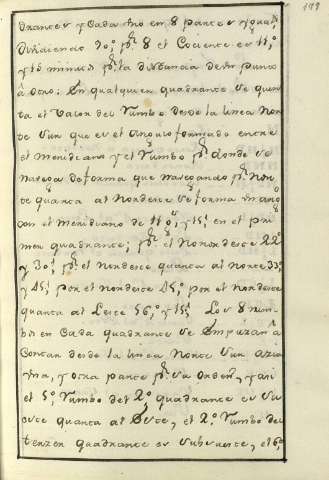 199
drantes y Cada uno en 8 partes yguals
Dividiendo 90°, pr. 8 el Cociente es 11°,
y 15 minutos pr. la distancia de un punto
â otro: En qualquier quadrante se quen
ta el Valor del Rumbo desde la linea Nor
te Sur que es el angulo formado entre
el meridiano y el Rumbo pr. donde se
navega de forma que navegando pr. Nor
te quarta al Nordeste se forma un ang
con el meridiano de 11 grs. y 15' en el pri
mer quadrante; pr. el Nornordeste 22°
y 30', pr. el Nordeste quarta al Norte 33°
y 45', por el Nordeste 45°, por el Nordeste
quarta al Leste 56°, y 15'. Los 8 rum
bos en Cada quadrante se Empiezan â
Contar desde la linea Norte Sur a una
y otra parte pr. su Orden, y asi
el 5°, Rumbo del 2°, quadrante es su
este quarta al Leste, el 2°, Rumbo del
tercer quadrante es sudsueste, el 6°,